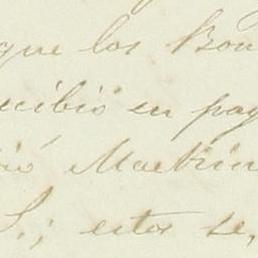 que los Bon
ecibió en pag
ió Martin
S.; estos se,